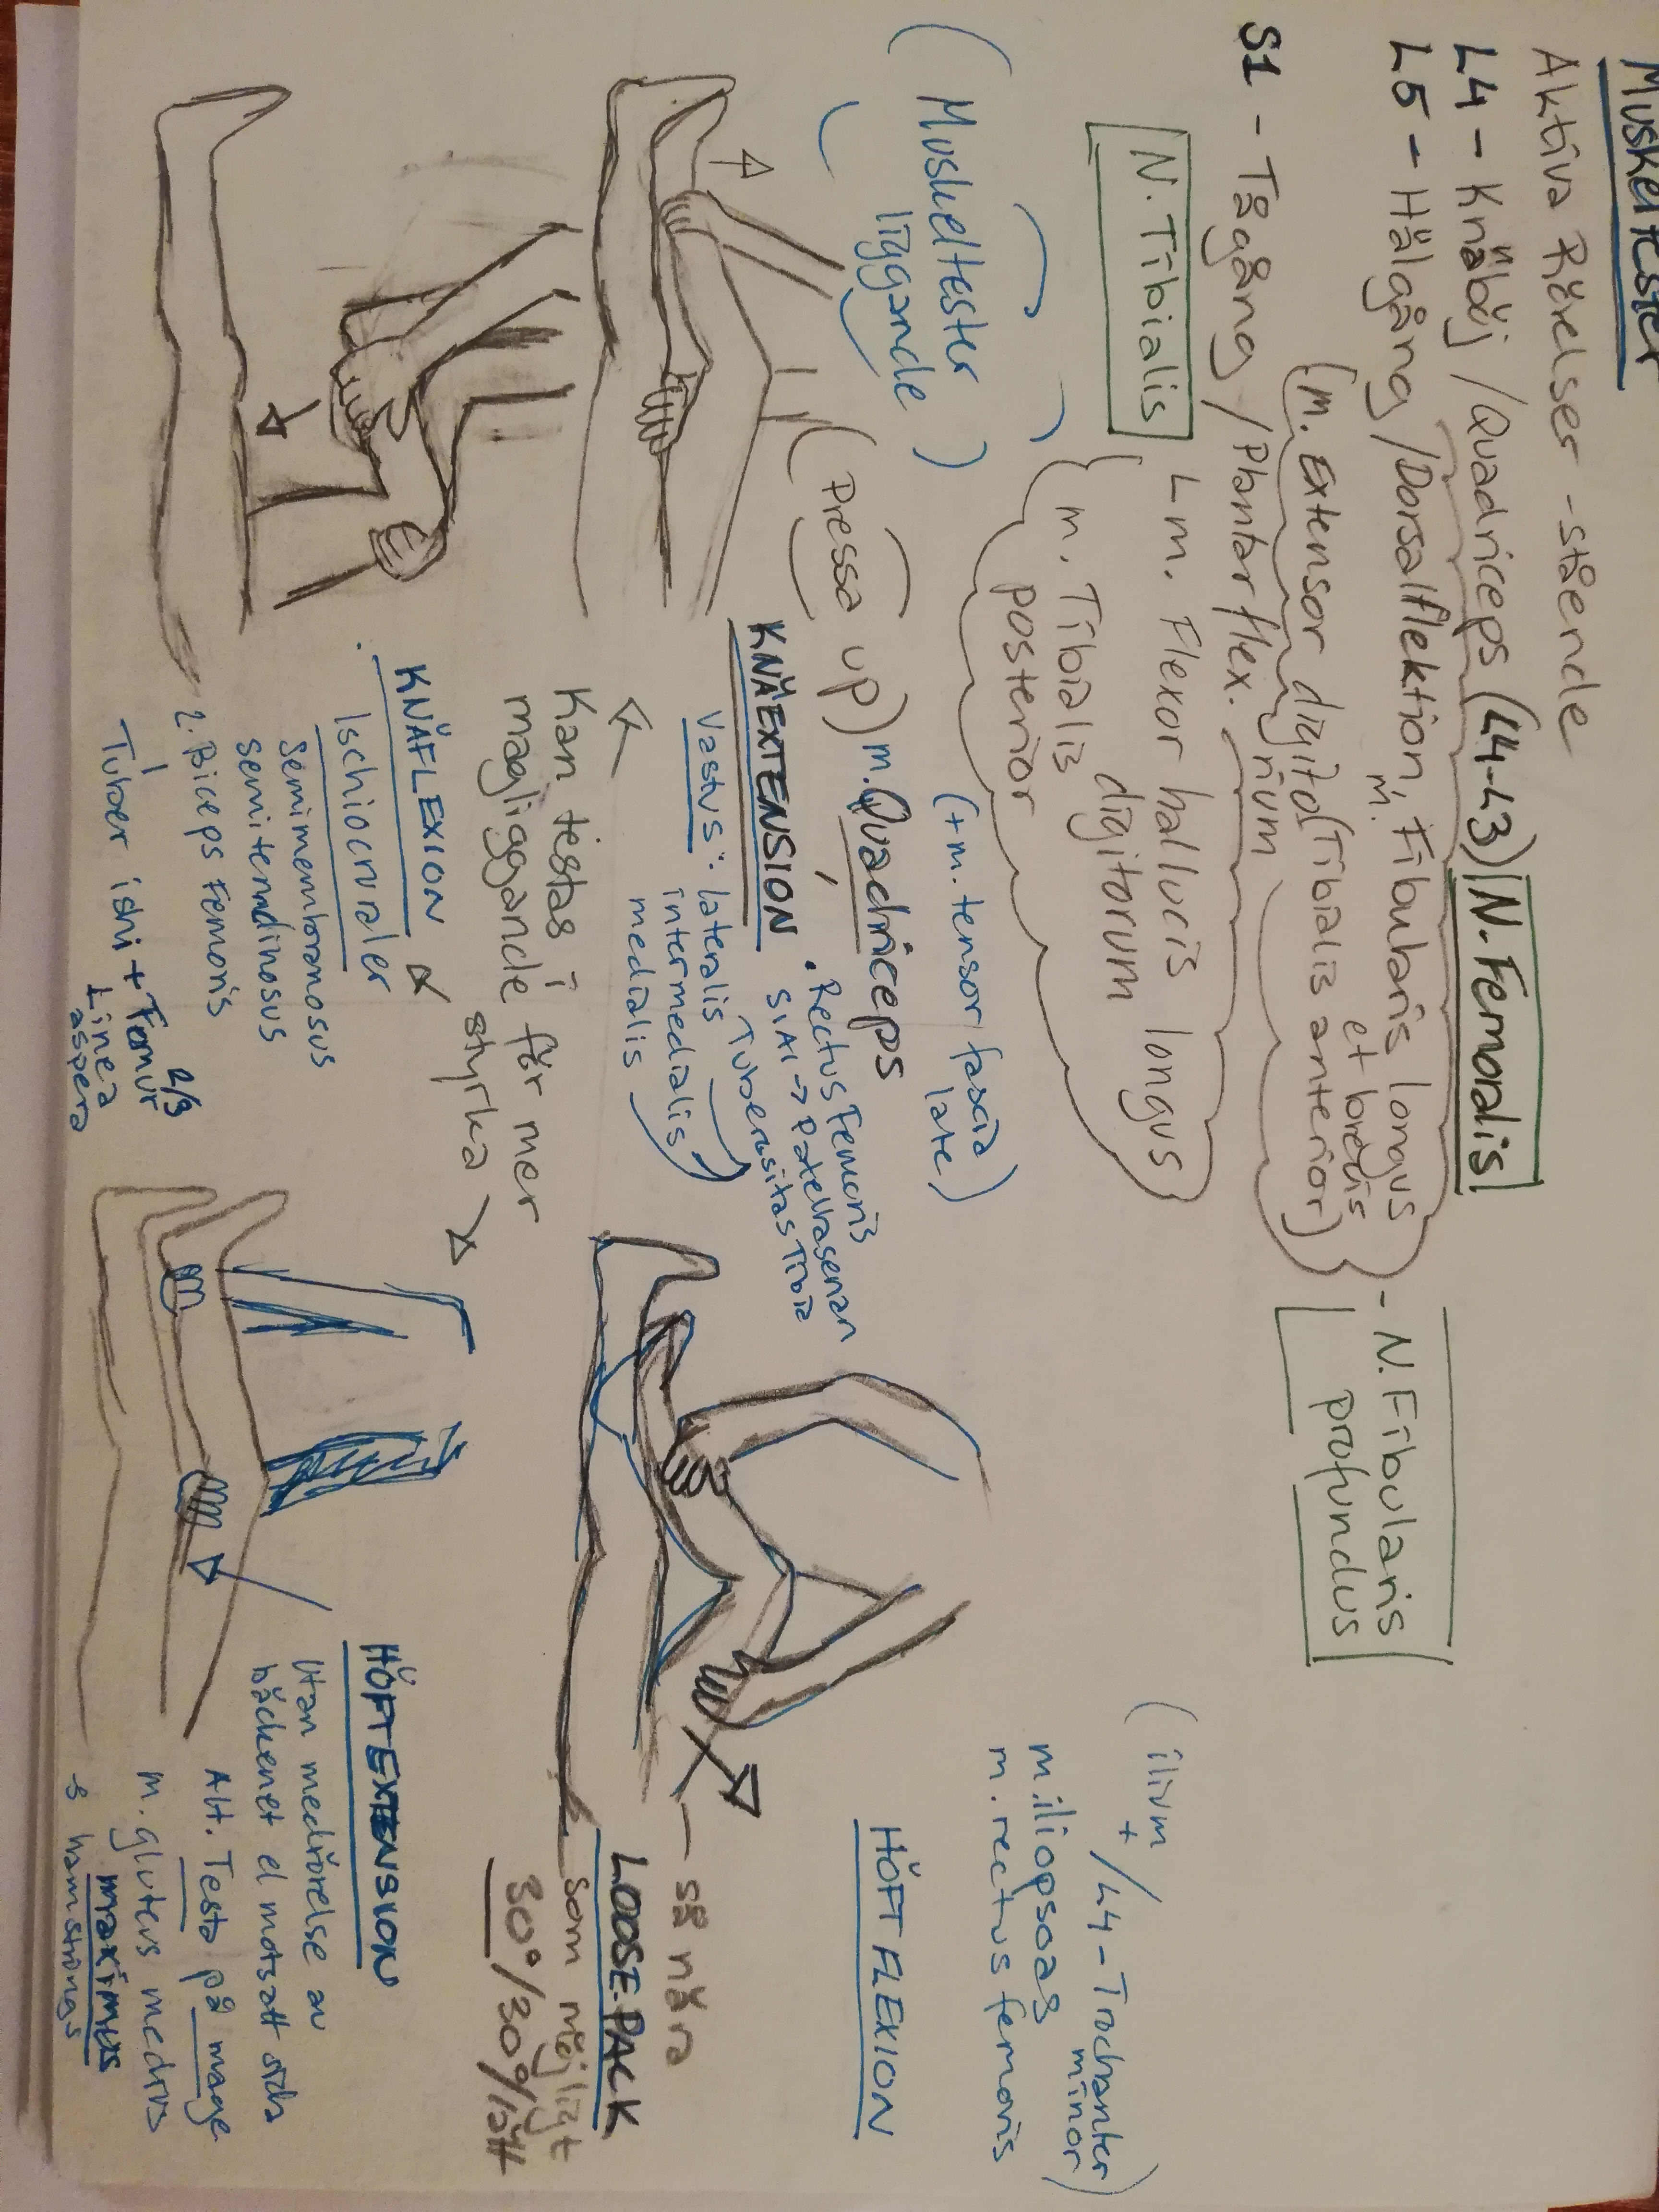 Muskeltester
Aktiva Rörelser - stående
L4 - Knäböj / Quadriceps (L4-L3) N. Femoralis
L5 - Hälgång / Dorsalflektion, m. Fibularis longus et brevis
(m. Extensor digitorium (Tibialis anterior)
- N. Fibularis
profundus
S1 - Tågång / Plantarflex.
N. Tibialis
L m. Flexor hallucis longus
digitorum
m. Tibialis
posterior
(Muskeltester
liggande)
(Pressa up)
m. Quadriceps
(+ m. tensor fascia
late)
KNÄEXTENSION
• Rectus Femoris
SIAI → Patellarsenan
Tuberositas Tibia
Vastus: lateralis
intermedialis
medialis
Kan testas i
magliggande för mer
styrka
KNÄFLEXION
Ischiocruraler
Semimembranosus
Semitendinosus
2. Biceps Femoris
Tuber ishi + Femur 2/3
Linea
aspera
(ilium
+ / L4 - Trochanter
minor)
m. iliopsoas
m. rectus femoris
HÖFTFLEXION
så nära
LOOSE PACK
som möjligt
30°/30°/lätt
HÖFTEXTENSION
Utan medrörelse av
bäckenet el motsatt sida
Alt. Testa på mage
m. gluteus medius
maximus
hamstrings